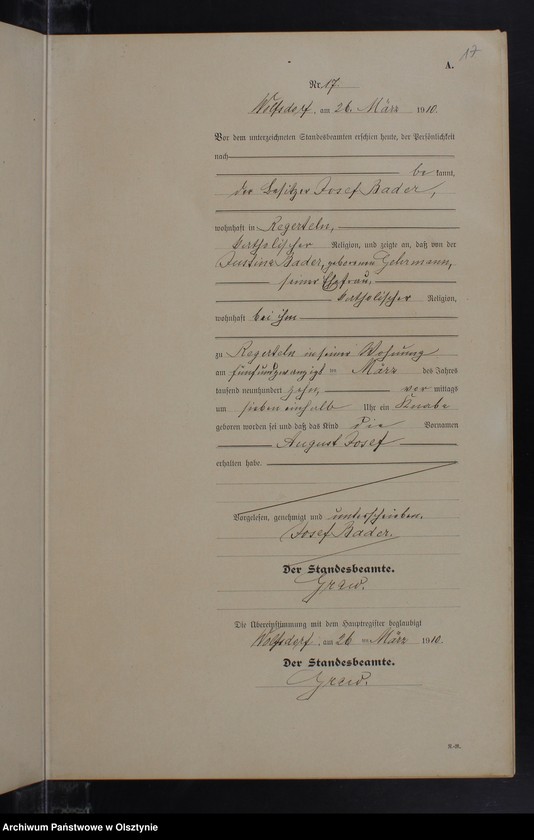 17
A.
Nr. 17
Wolfsdorf, am 26. März 1910.
Vor dem unterzeichneten Standesbeamten erschien heute, der Persönlichkeit
nach
bekannt,
der Besitzer Josef Bader,
wohnhaft in Regerteln,
katholischer Religion, und zeigte an, daß von der
Justine Bader, geborenen Gehrmann,
seiner Ehefrau,
katholischer Religion,
wohnhaft bei ihm
zu Regerteln in seiner Wohnung
am fünfundzwanzigsten März des Jahres
tausend neunhundert zehn, vormittags
um sieben einhalb Uhr ein Knabe
geboren worden sei und daß das Kind die Vornamen
August Josef
erhalten habe.
Vorgelesen, genehmigt und unterschrieben.
Josef Bader.
Der Standesbeamte.
Die Übereinstimmung mit dem Hauptregister beglaubigt
Wolfsdorf, am 26. März 1910.
Der Standesbeamte.
Archiwum Państwowe w Olsztynie